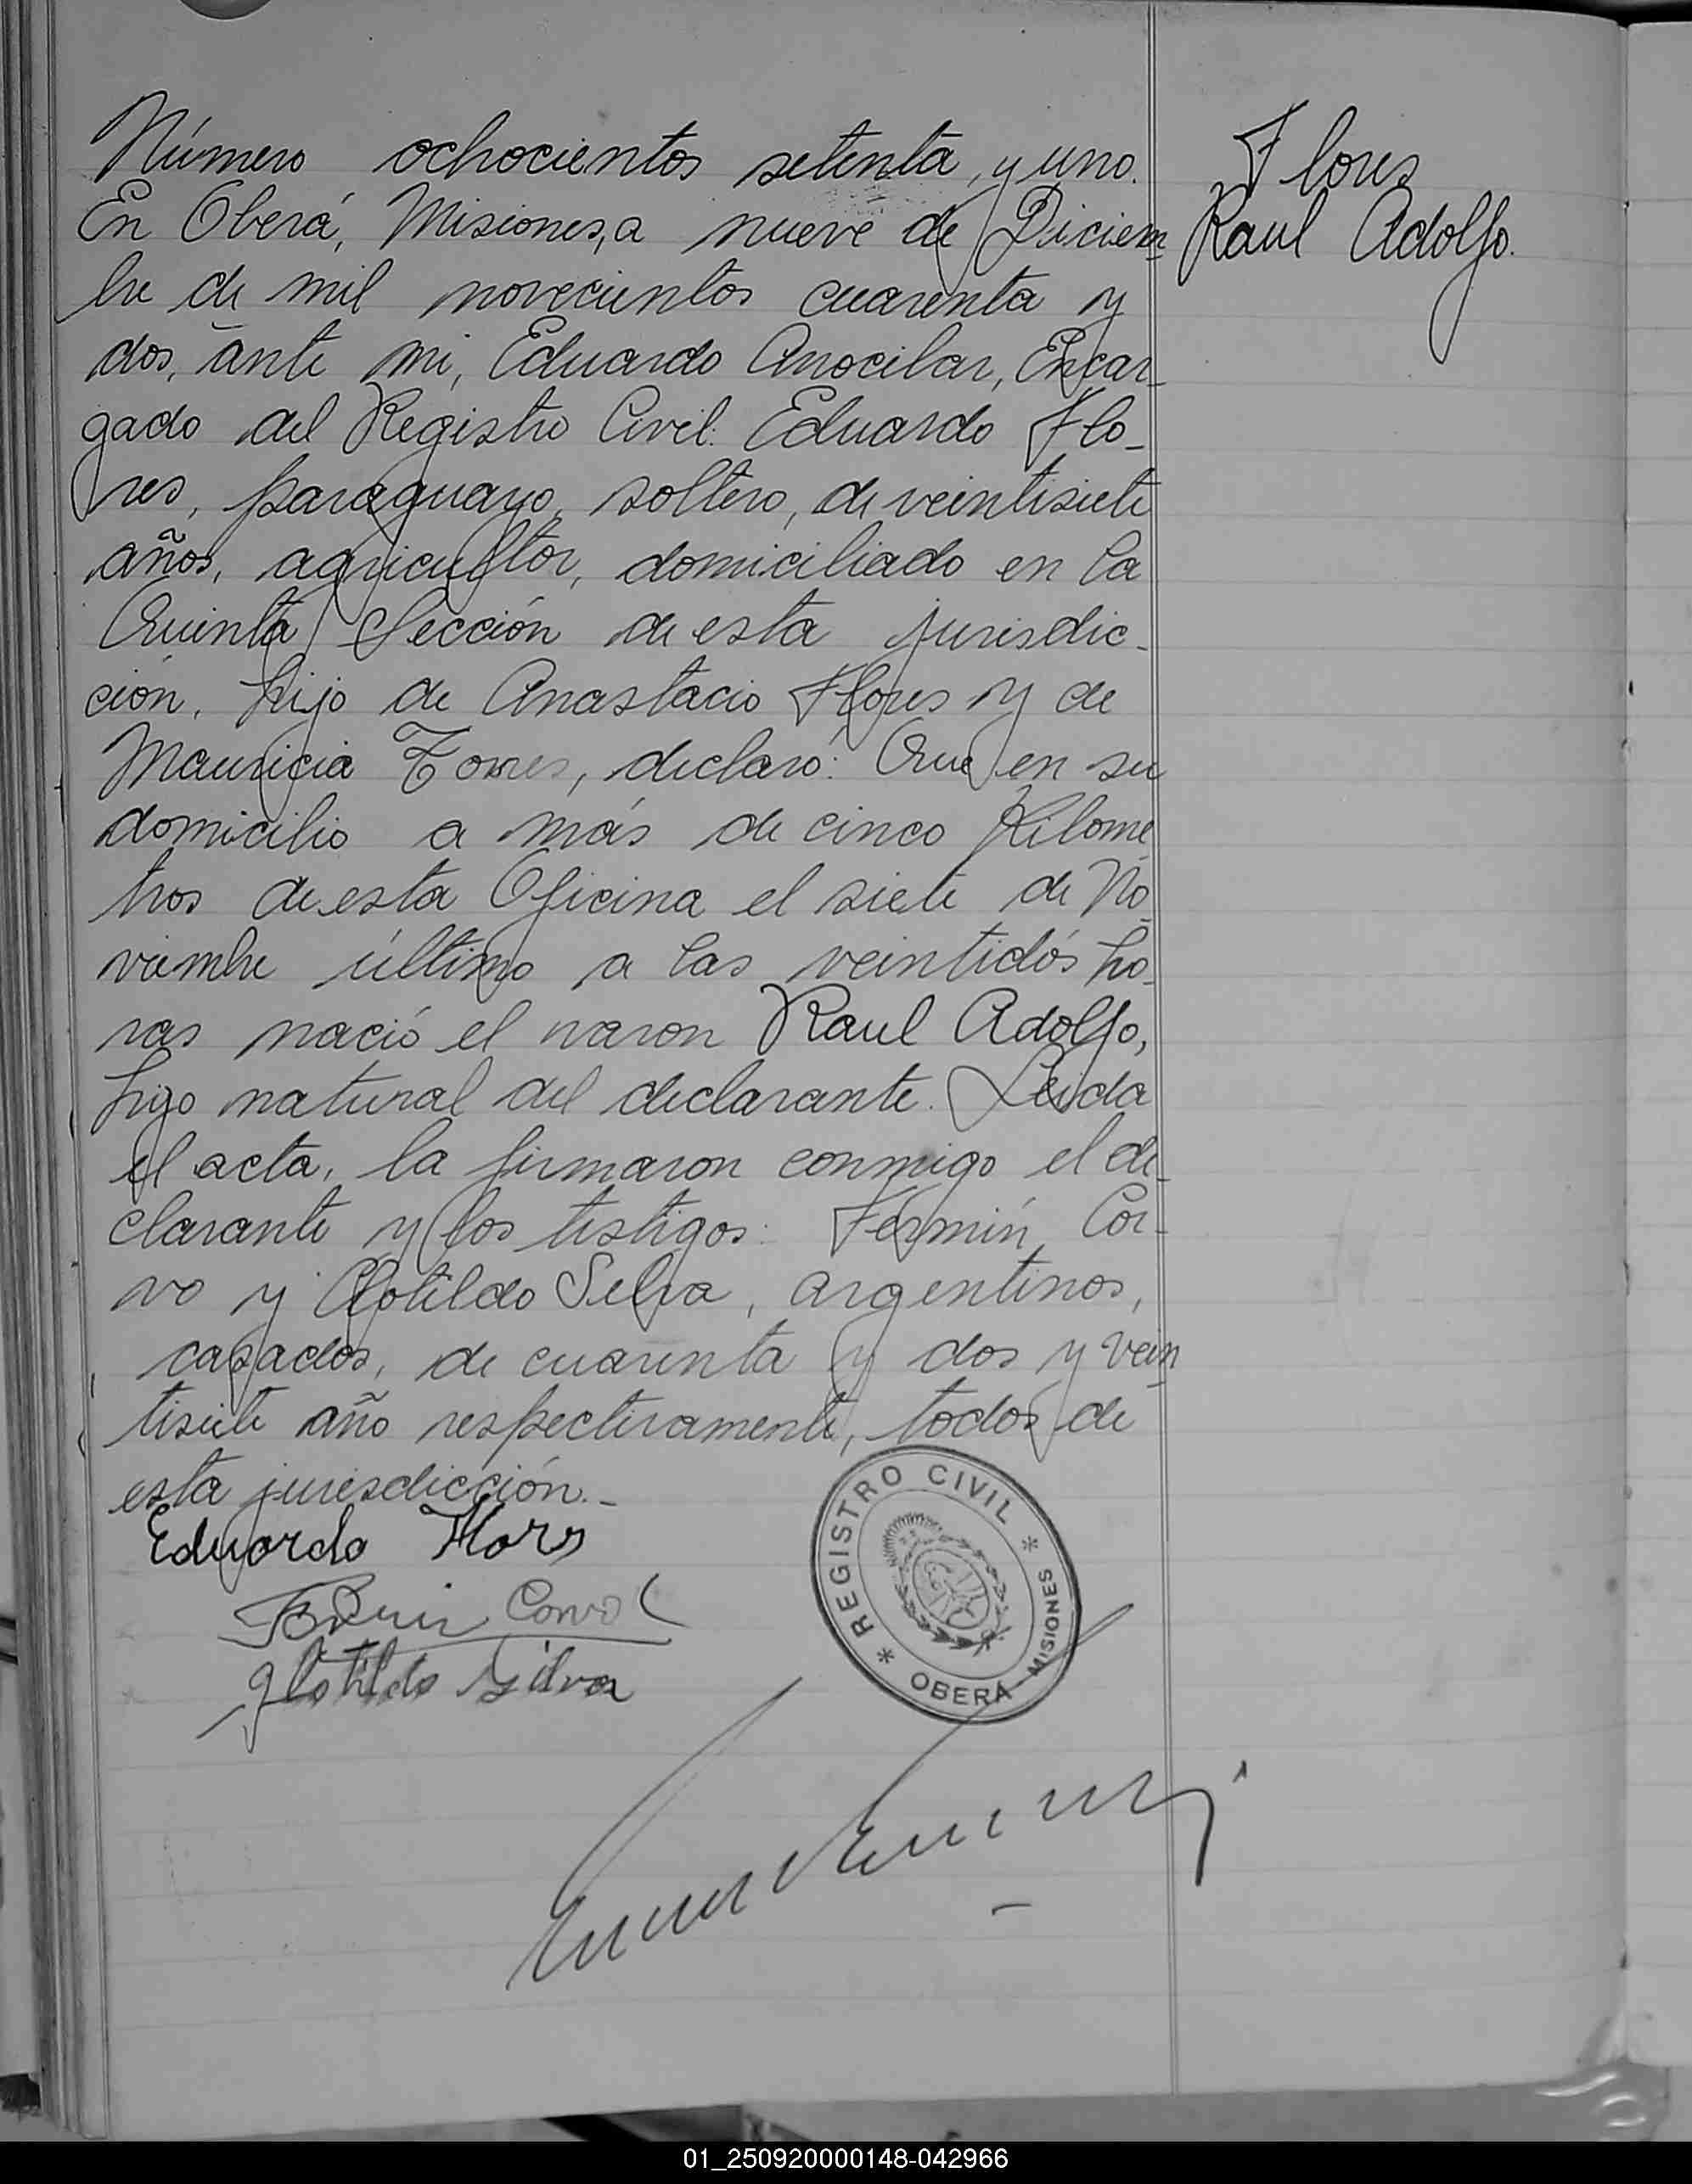 Número ochocientos setenta y uno.
En Oberá, Misiones, a nueve de Diciem
bre de mil novecientos cuarenta y
dos, ante mi, Eduardo Anocibar, Encar-
gado del Registro Civil: Eduardo Flo-
res, paraguayo, soltero, de veintisiete
años, agricultor, domiciliado en la
Quinta Sección de esta jurisdic-
ción, hijo de Anastacio Flores y de
Mauricia Torres, declaró: Que en su
domicilio a más de cinco Kilome
tros de esta Oficina el siete de No
viembre último a las veintidós ho
ras nació el varon Raul Adolfo,
hijo natural del declarante. Leida
el acta, la firmaron conmigo el de-
clarante y los testigos: Fermín Cor-
vo y Clotildo Selva, argentinos,
casados, de cuarenta y dos y vein
tisiete año respectivamente, todos de
esta jurisdicción.-
Flores
Raul Adolfo.
Eduardo Flors
Corvo
Glotildo Silva
REGISTRO CIVIL
OBERÁ - MISIONES
01_250920000148-042966